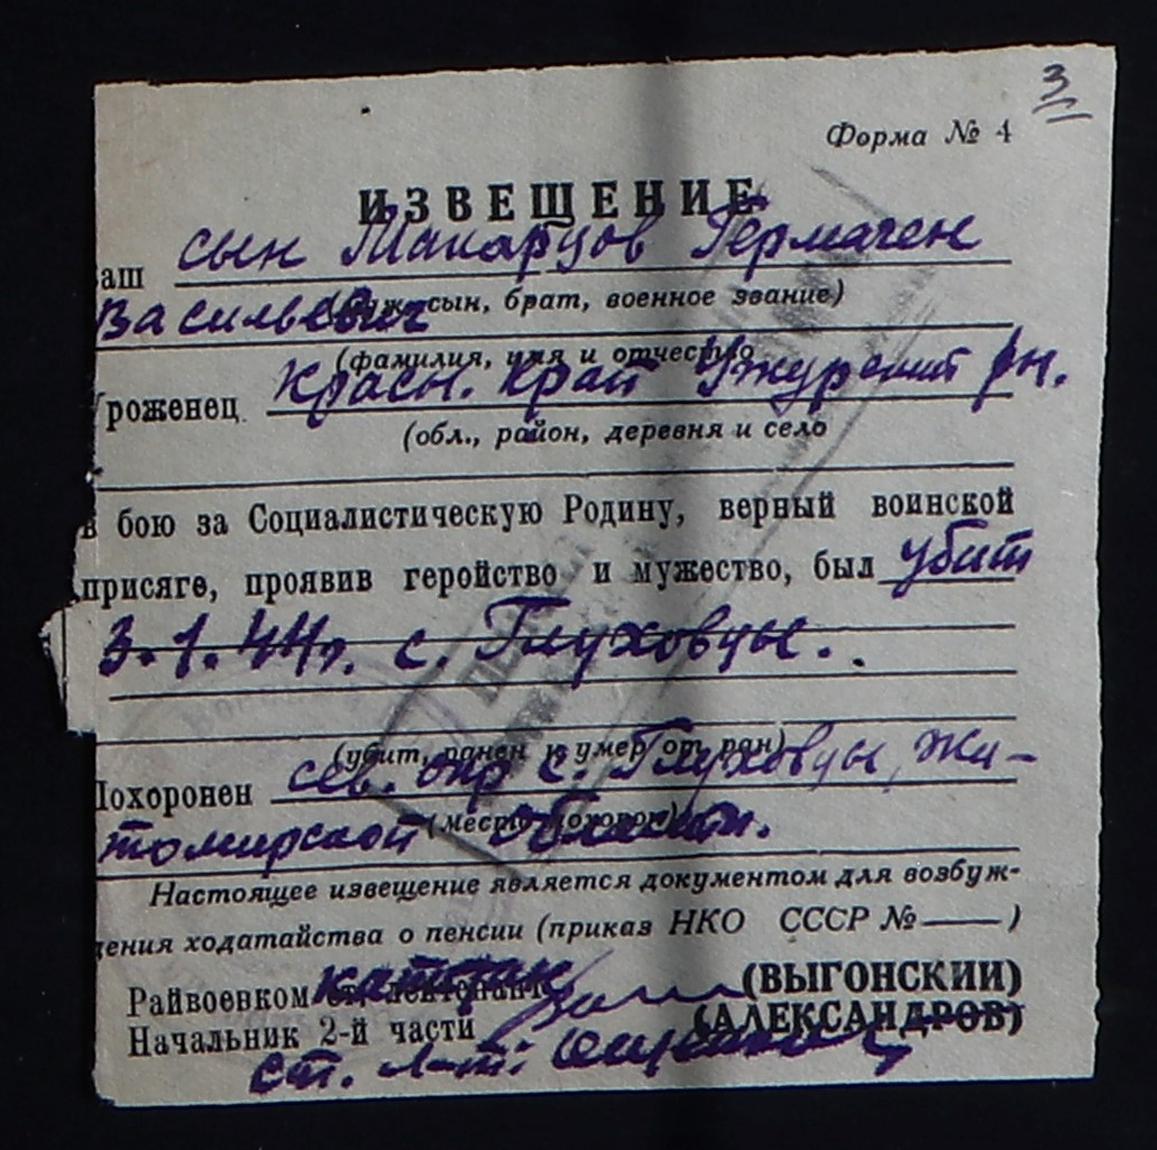 3
Форма № 4
ИЗВЕЩЕНИЕ
аш сын Макарцов Гермаген
(муж, сын, брат, военное звание)
Васильевич
(фамилия, имя и отчество
Уроженец Красн. край Ужурский рн.
(обл., район, деревня и село
в бою за Социалистическую Родину, верный воинской
присяге, проявив геройство и мужество, был убит
3.1.44г. с. Глуховцы.
(убит, ранен и умер от ран)
Похоронен сев. окр с. Глуховцы, Жи-
(место похорон)
томирской области.
Настоящее извещение является документом для возбуж-
дения ходатайства о пенсии (приказ НКО СССР № —— )
Райвоенком капитан (ВЫГОНСКИЙ)
Начальник 2-й части (АЛЕКСАНДРОВ)
ст. л-т.